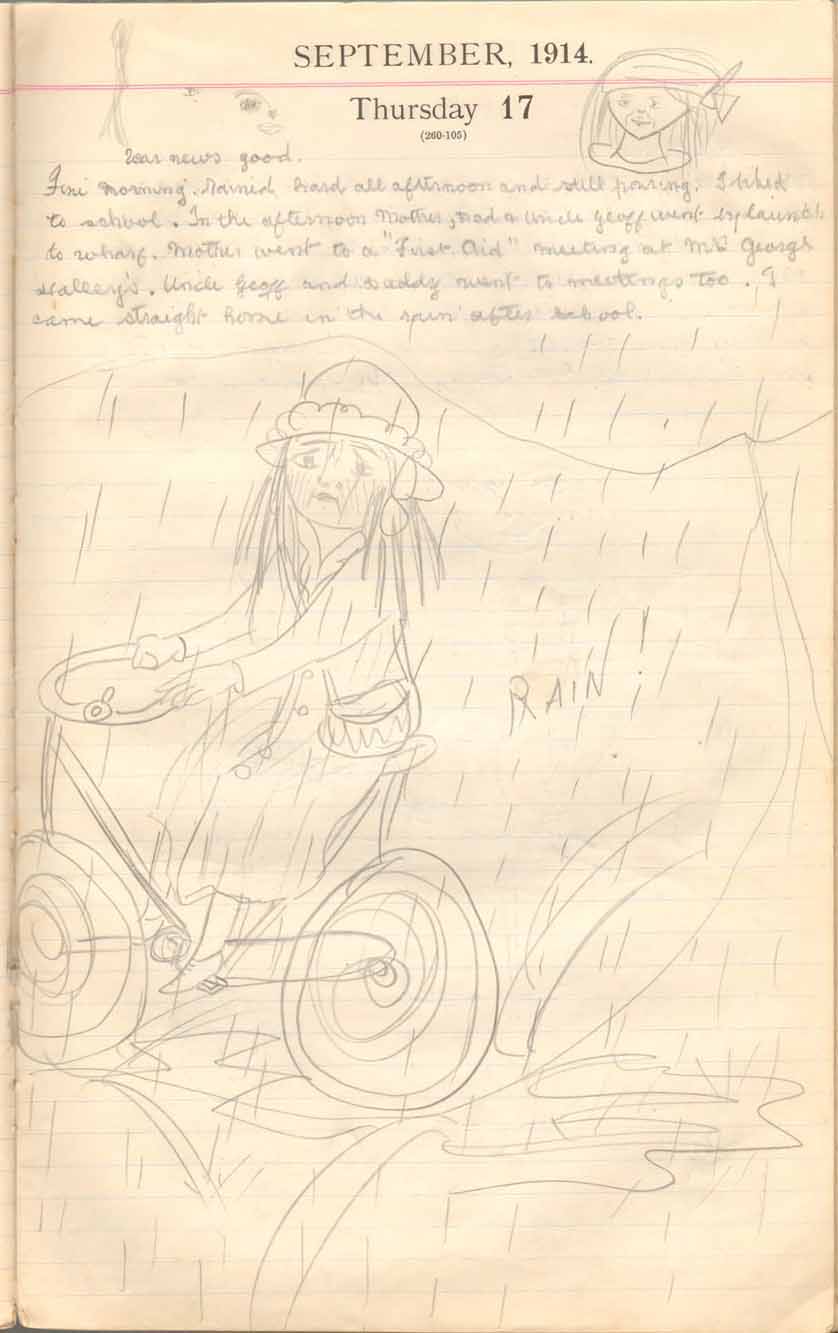 SEPTEMBER, 1914.
Thursday 17
(260-105)
War news good.
Fine morning. Rained hard all afternoon and still pouring. I biked
to school. In the afternoon Mother, Dad & Uncle Geoff went by launch
to wharf. Mother went to a "First Aid" meeting at Mrs George
Halley's. Uncle Geoff and Daddy went to meetings too. I
came straight home in the rain after school.
RAIN!